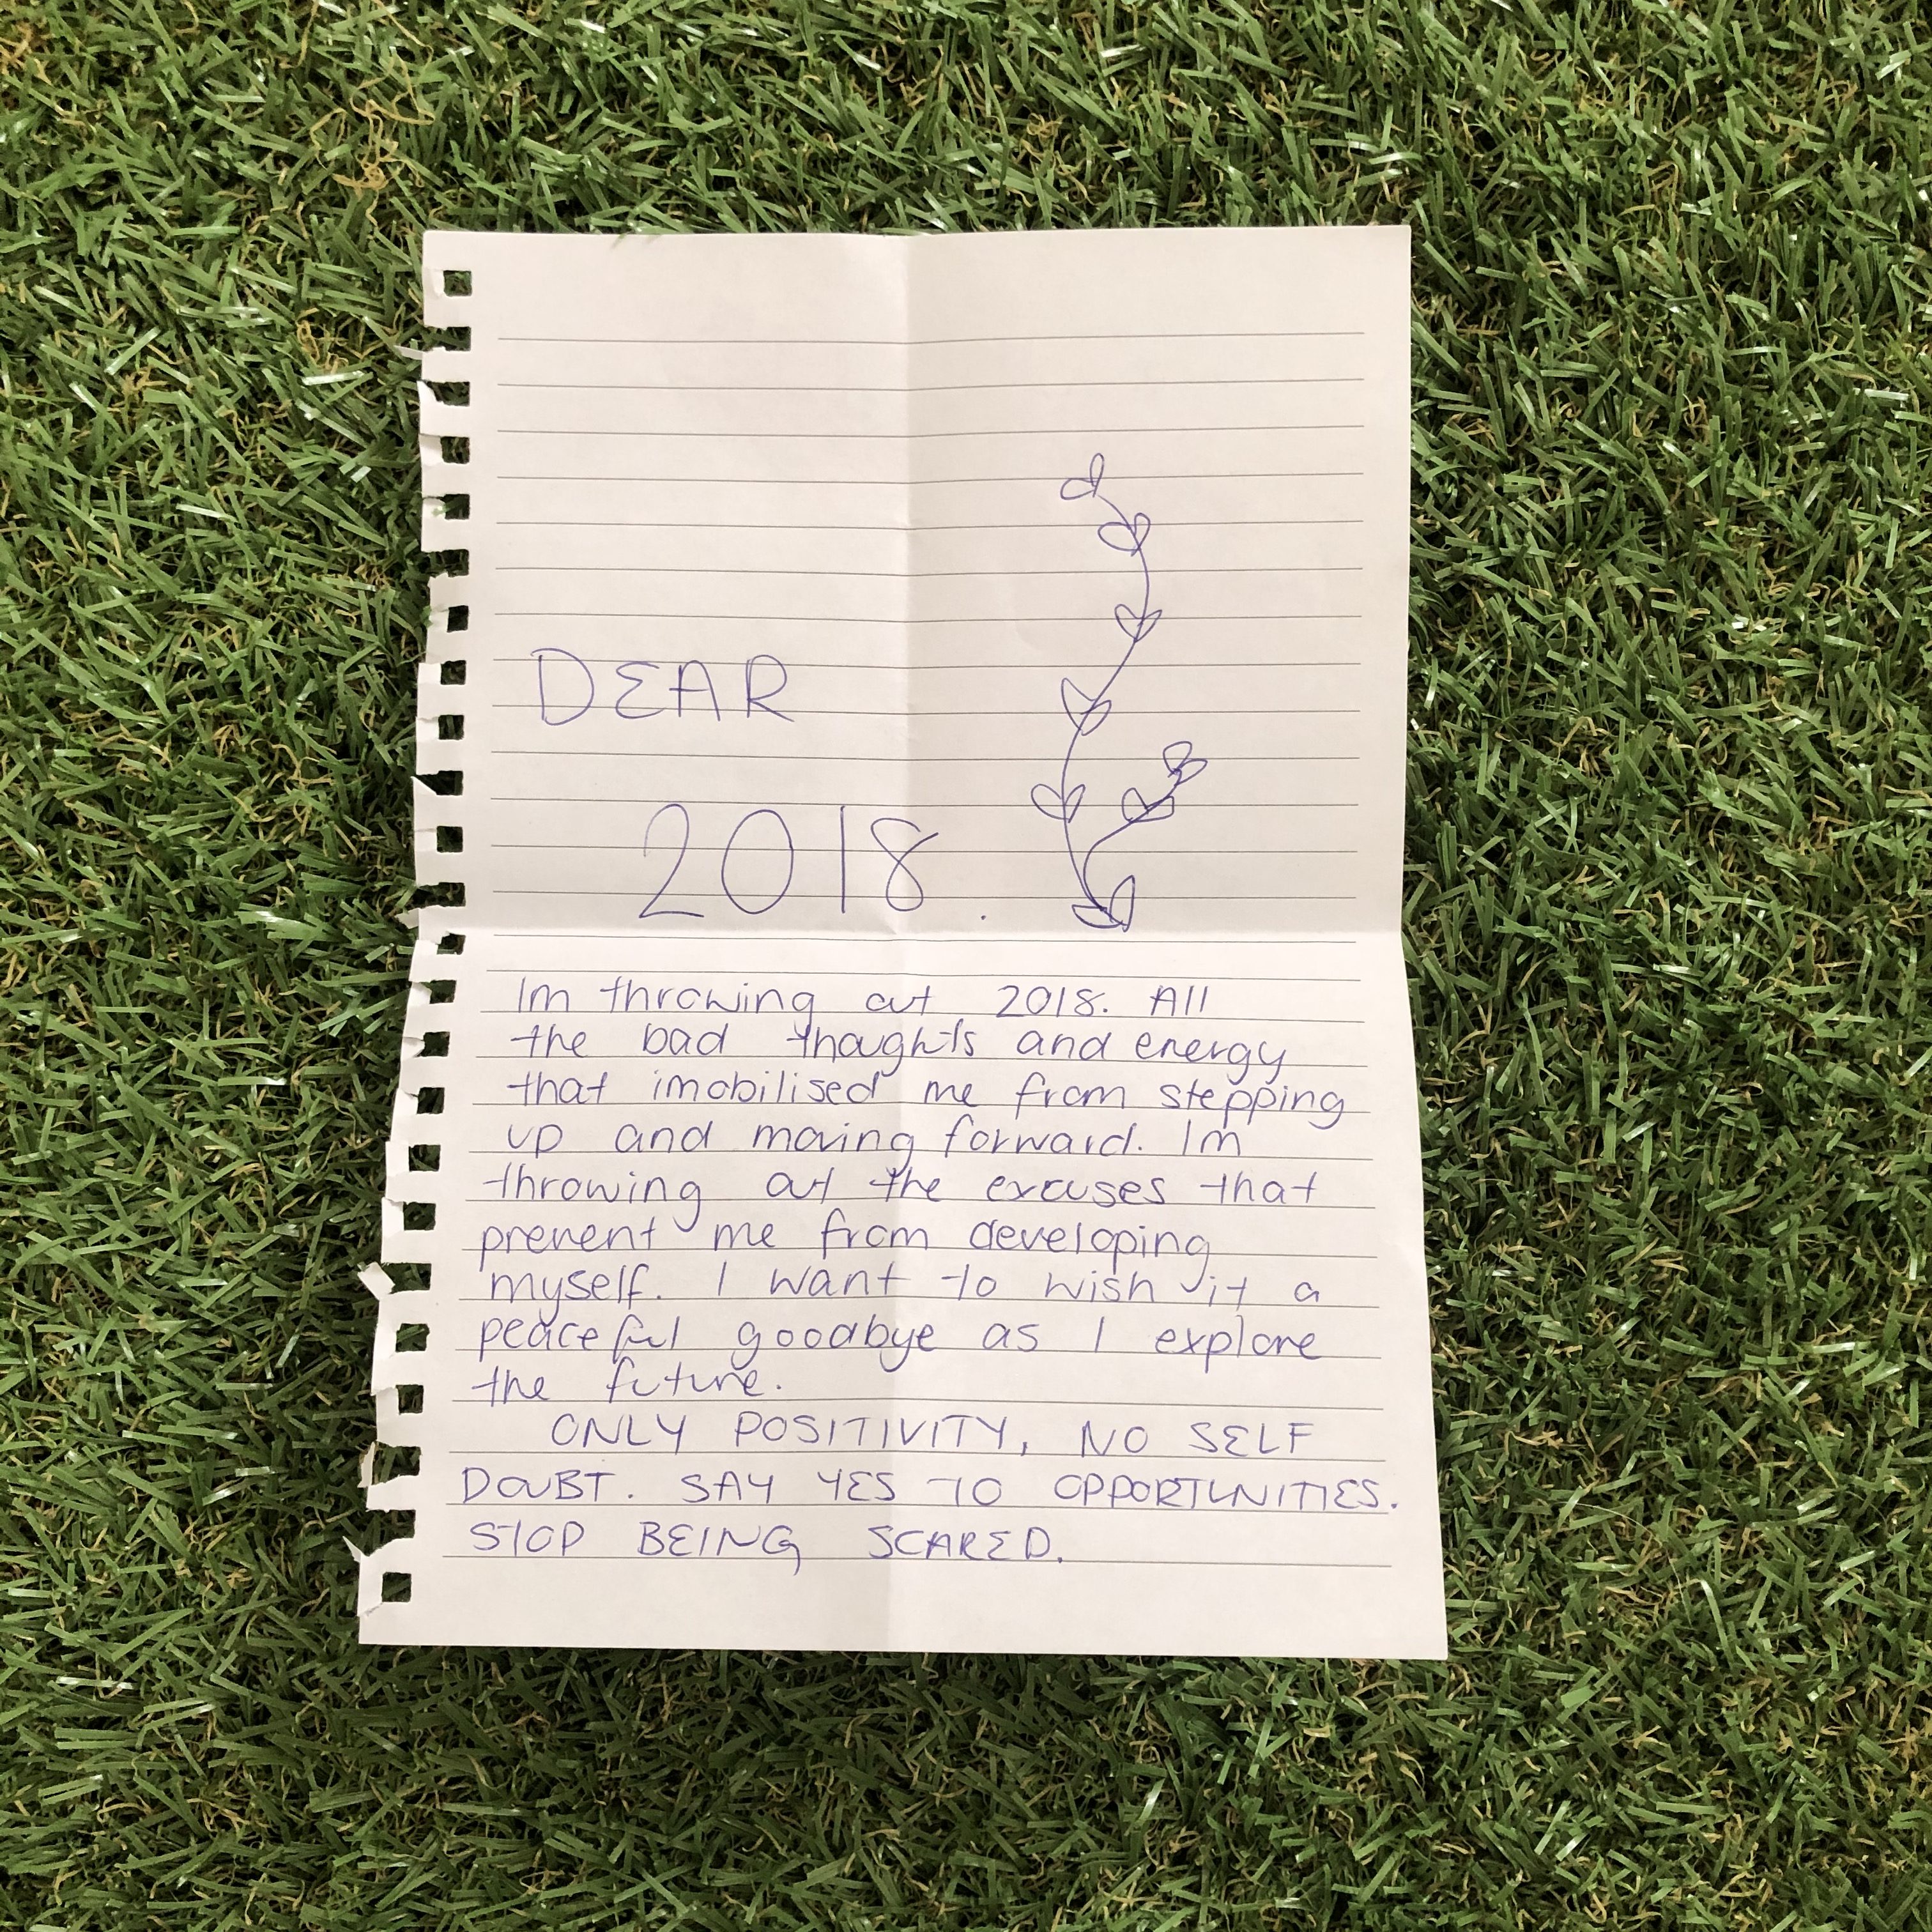 DEAR
2018.
Im throwing out 2018. All
the bad thoughts and energy
that imobilised me from stepping
up and moving forward. Im
throwing out the excuses that
prevent me from developing
myself. I want to wish it a
peaceful goodbye as I explore
the future.
ONLY POSITIVITY, NO SELF
DOUBT. SAY YES TO OPPORTUNITIES.
STOP BEING SCARED.